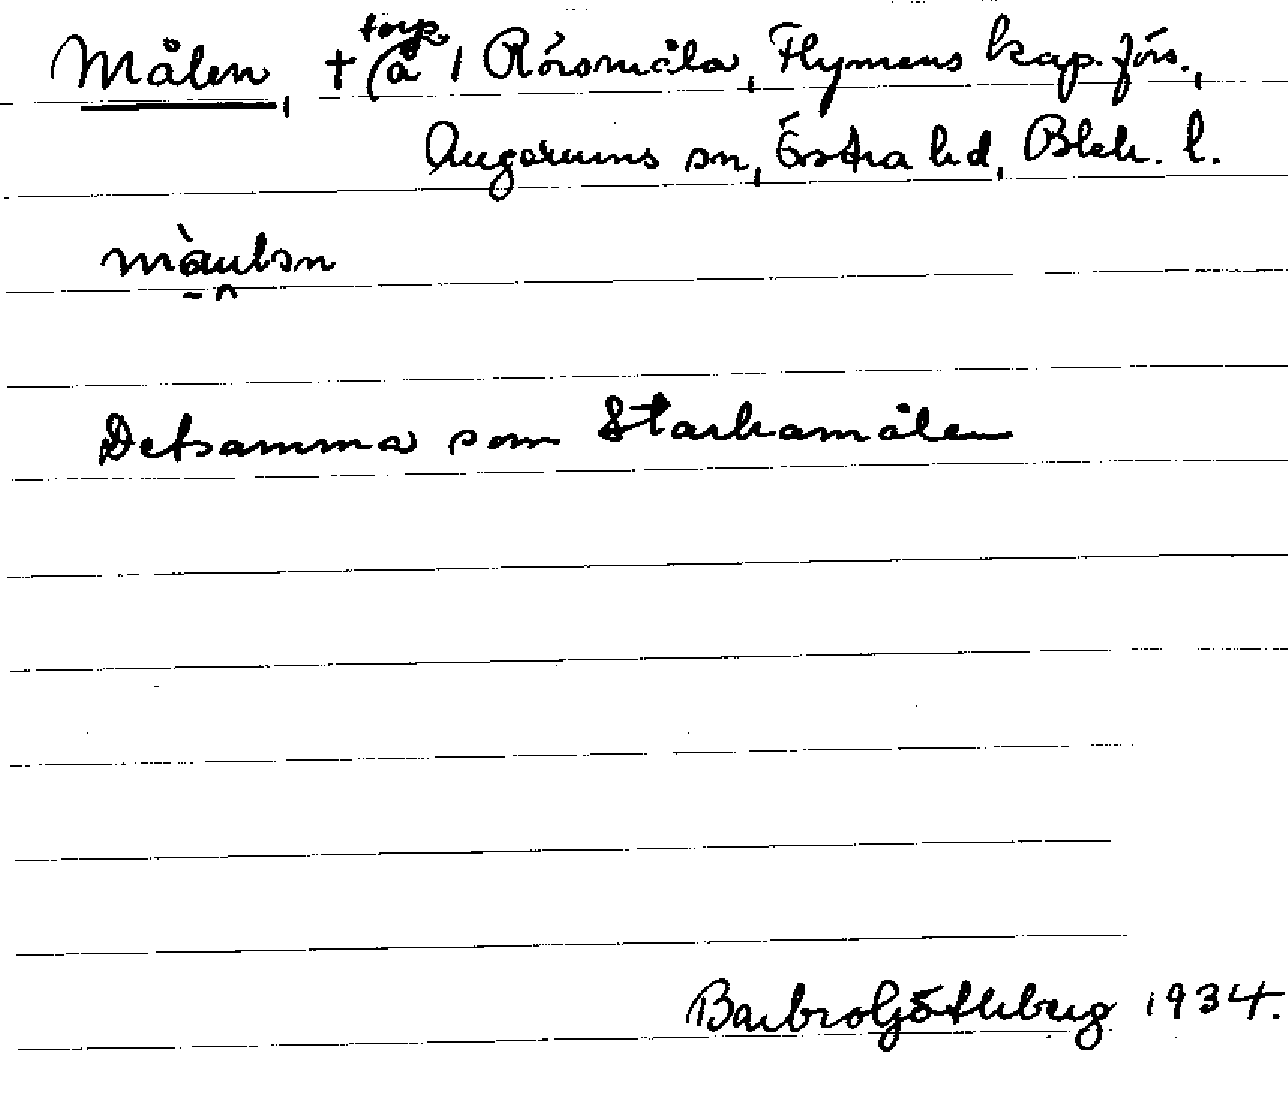 Målen, † torp (å / Rörsmåla, Flymens kap. förs.,
Augerums sn, Östra hd, Blek. l.
màulən
Detsamma som Starkamålen
Barbro Göthberg 1934.